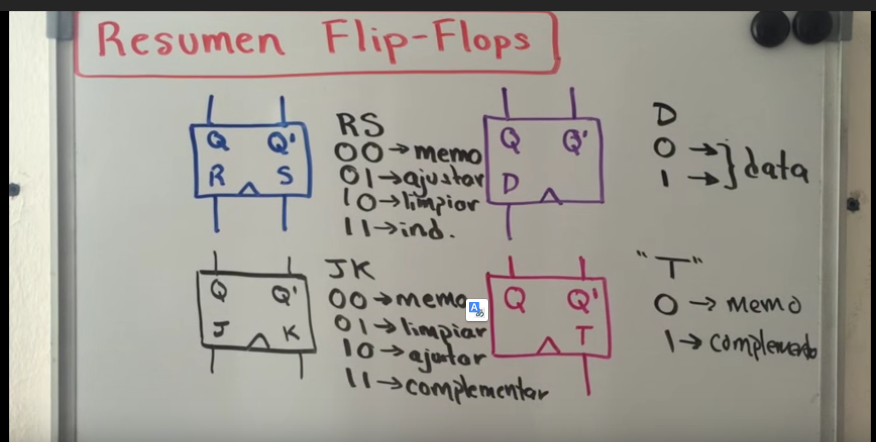 Resumen Flip-Flops
Q Q'
R S
RS
00→memo
01→ajustar
10→limpiar
11→ind.
Q Q'
D
D
0→
1→
}data
Q Q'
J K
JK
00→memo
01→limpiar
10→ajustar
11→complementar
Q Q'
T
"T"
0→memo
1→complemento